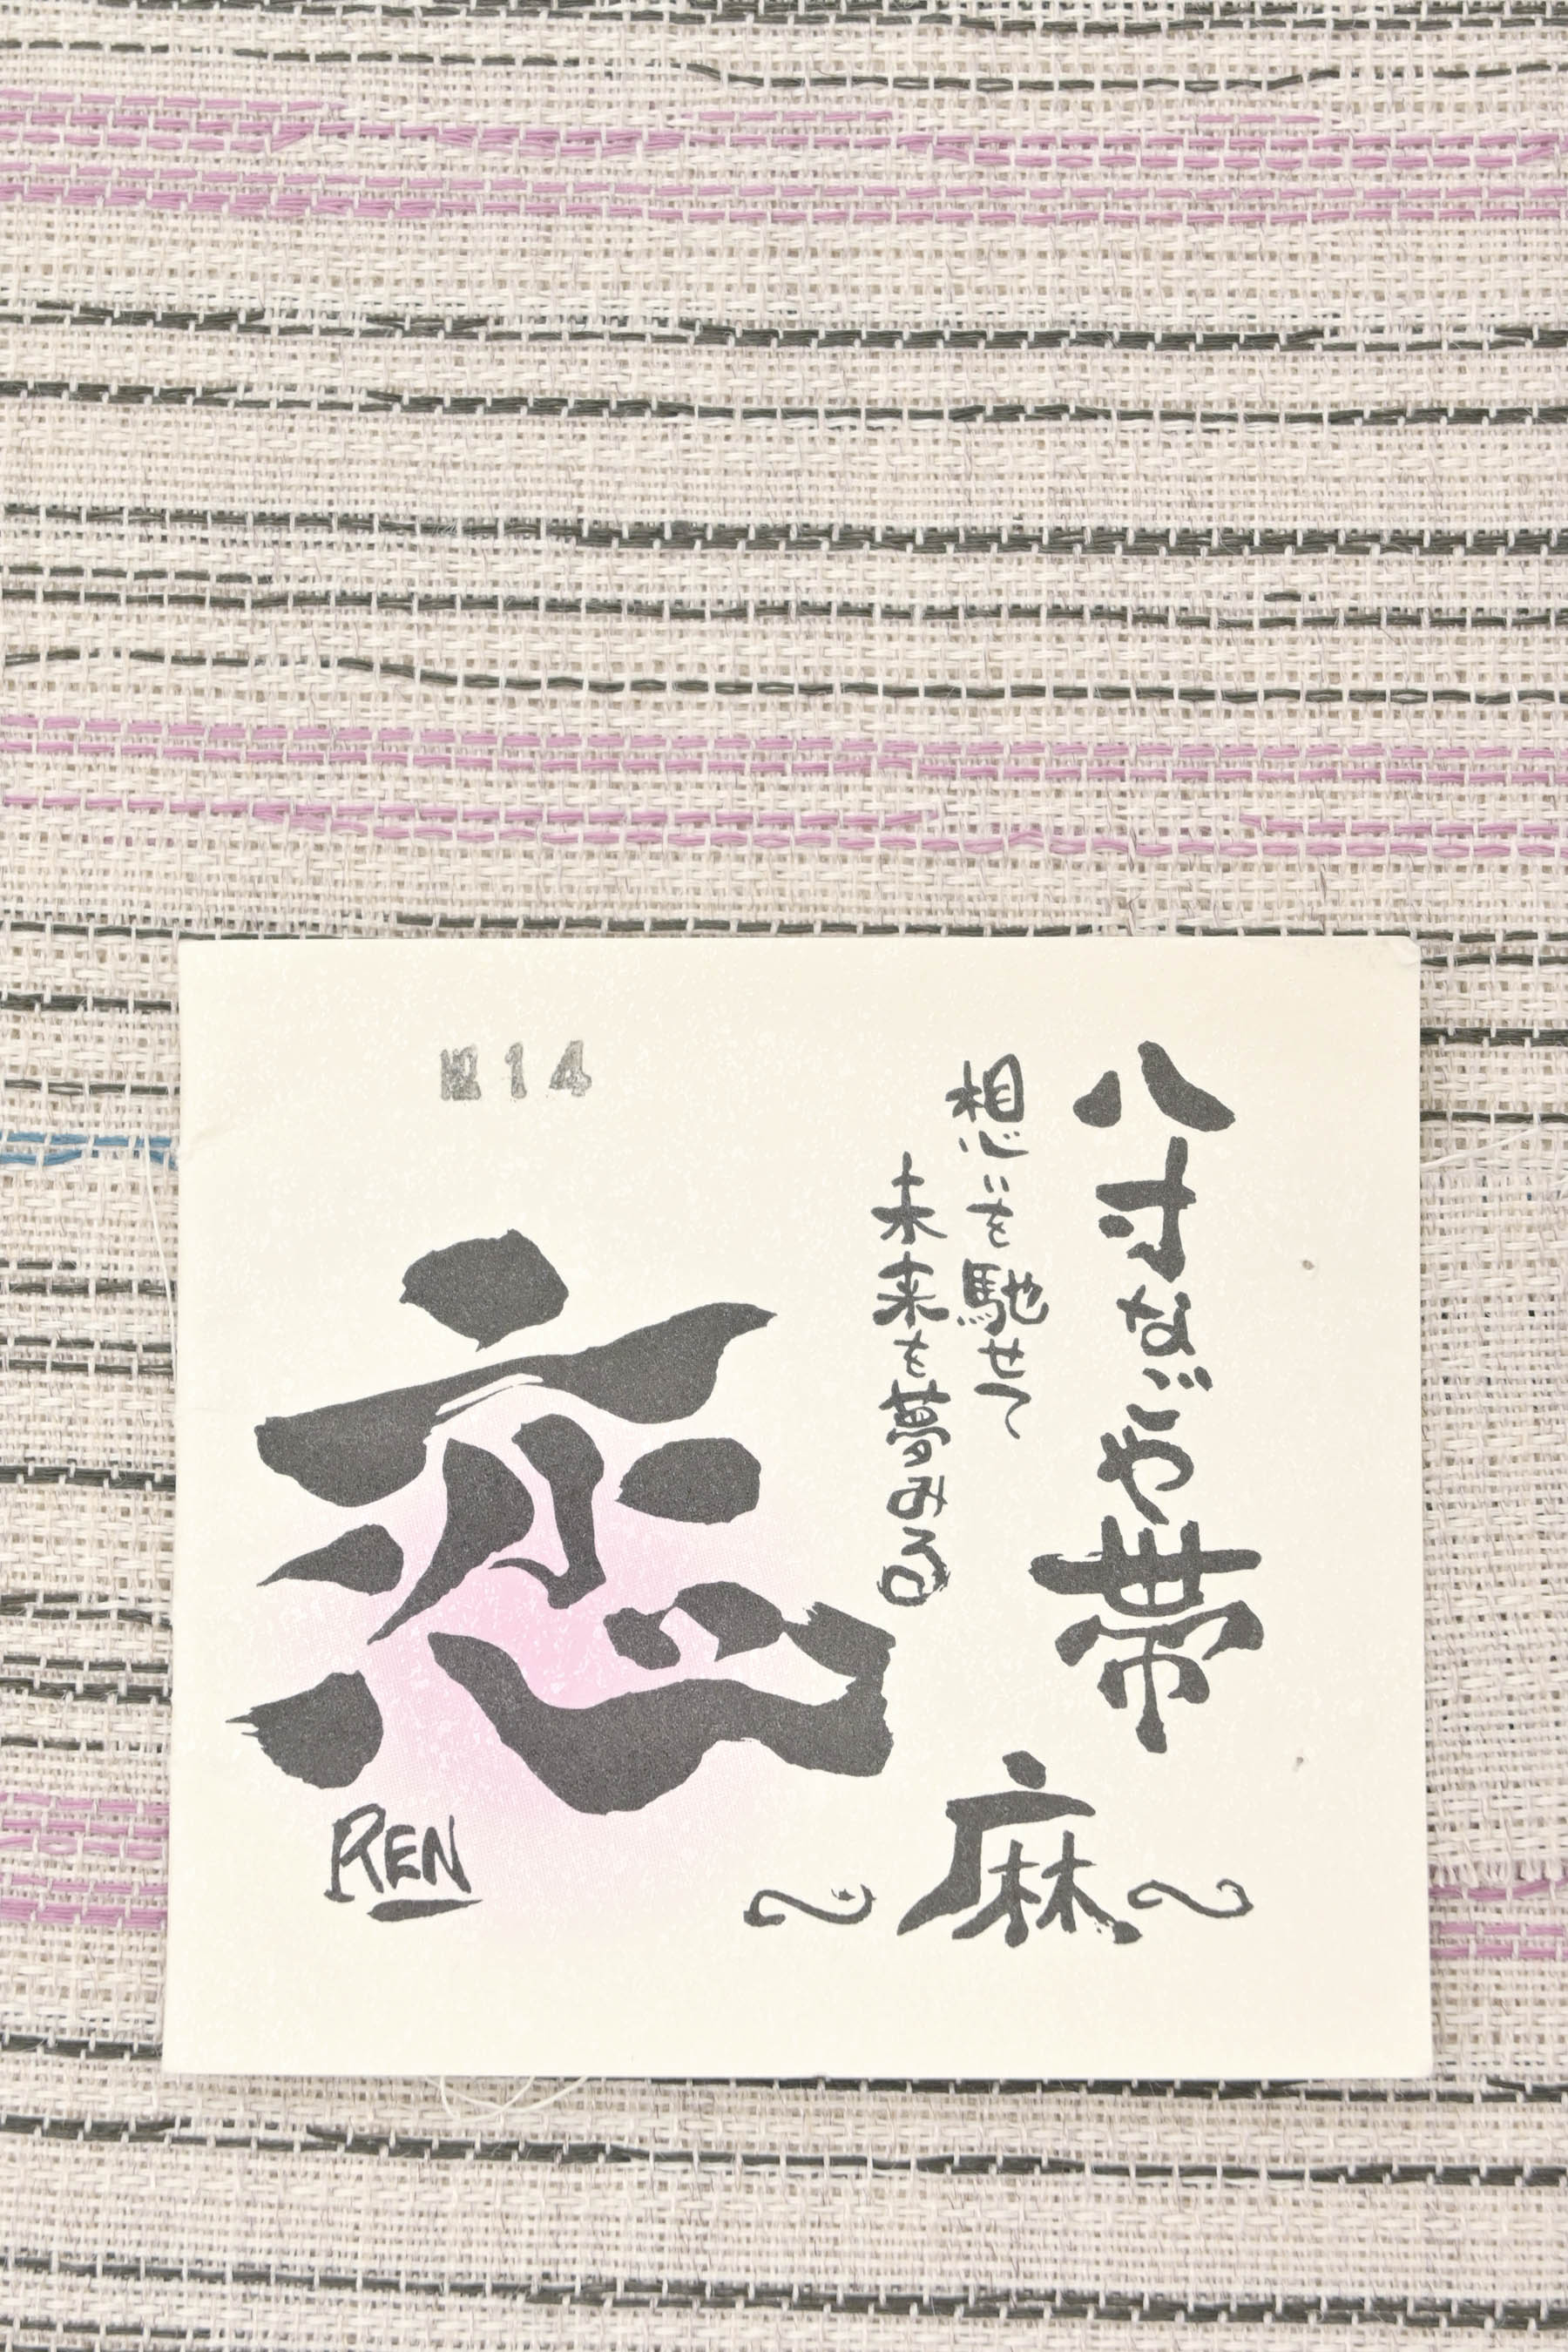 八寸なごや帯
想いを馳せて
未来を夢みる
~麻~
恋
REN
14